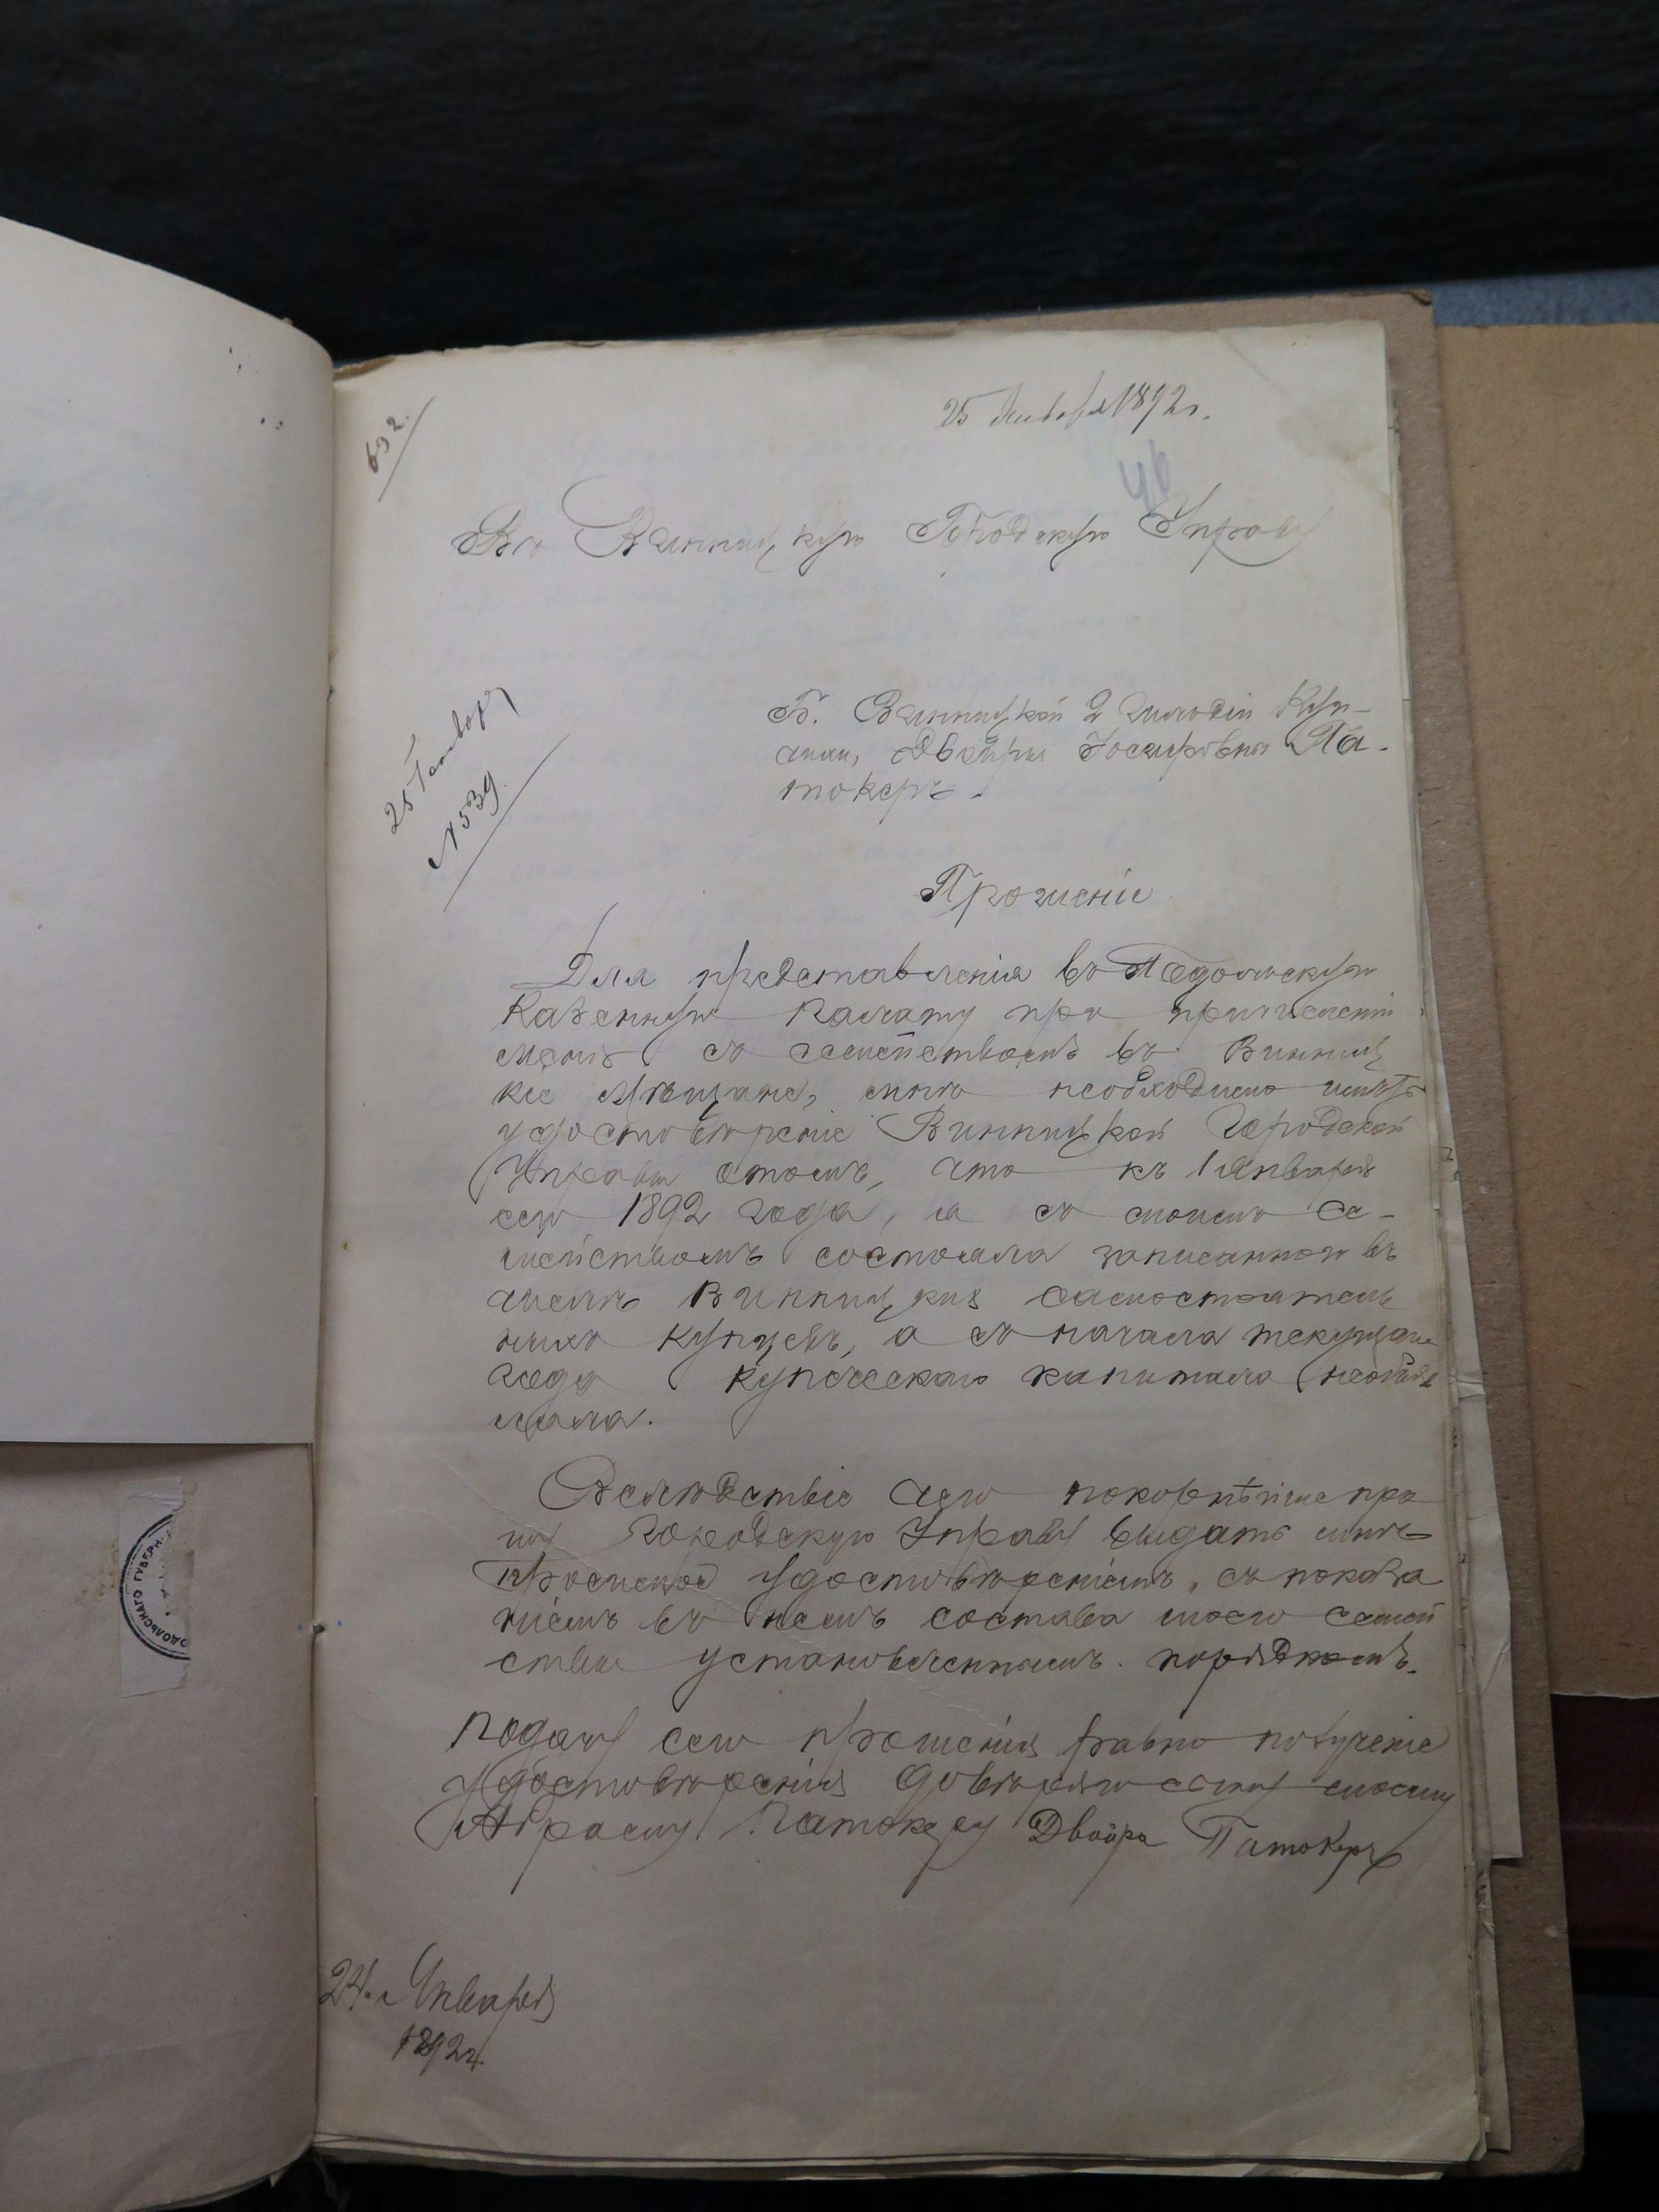 692.
25 Января 1892 г.
46
Въ Винницкую Городскую Управу
25 Января
№ 539.
Б. Винницкой 2 гильдіи Куп-
чихи, Двойры Іосифовны Па-
токеръ.
Прошеніе
Для представленія въ Подольскую
Казенную Палату при причисленіи
меня съ семействомъ въ Винниц
кіе Мѣщане, мнѣ необходимо имѣть
удостовѣреніе Винницкой Городской
Управы отомъ, что къ 1 Января
сего 1892 года, я съ моимъ се-
мействомъ состояла записанною въ
числѣ Винницкихъ самостоятель
ныхъ купцевъ, а съ начала текущаго
года купеческаго капитала необъя
вляла.
Вслѣдствіе чего покорнѣйше про
шу Городскую Управу выдать мнѣ
просимое удостовѣреніемъ, съ показа
ніемъ въ немъ состава моего семей
ства установленнымъ порядкомъ.
Подачу сего прошенія равно полученіе
удостовѣренія довѣряю сыну моему
Абраму Патокеру Двойра Патокеръ
24. Января
1892 г.
ОДОЛЬСКАГО ГУБЕРН